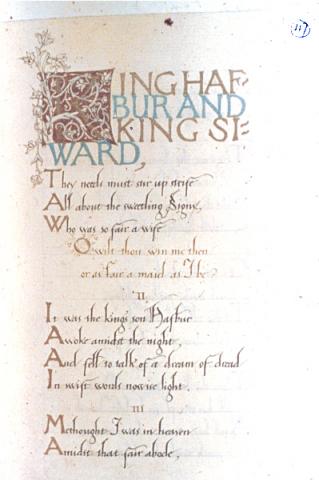 KING HAF=
BUR AND
KING SI=
WARD,
They needs must stir up strife
All about the sweetling Signe,
Who was so fair a wife
O wilt thou win me then
or as fair a maid as I be?
II
It was the king's son Hafbur
Awoke amidst the night,
And fell to talk of a dream of dread
In swift words nowise light.
III
Methought I was in heaven
Amidst that fair abode,